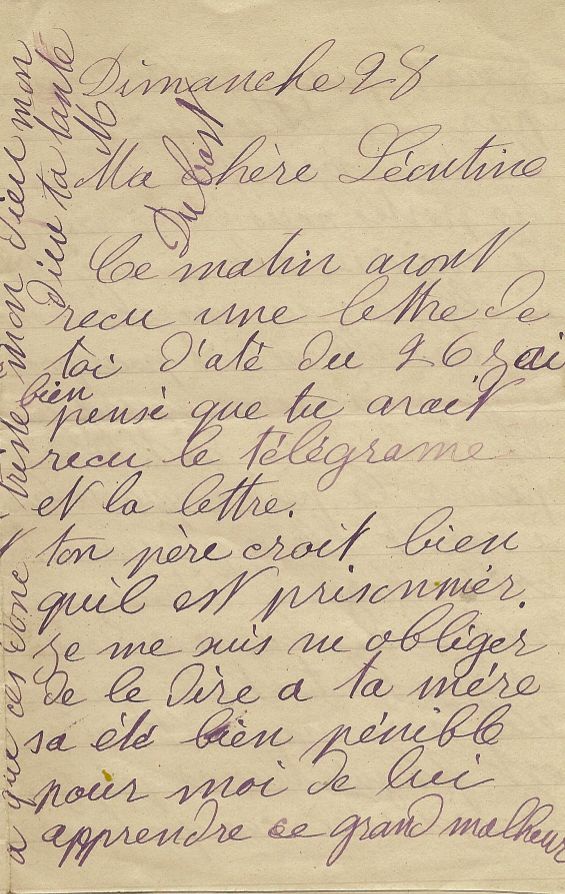 Dimanche 28
Ma chère Léontine
Ce matin avont
recu une lettre de
toi d'até du 26 j ai
bien
pensé que tu avait
recu le télégrame
et la lettre.
ton père croit bien
quil est prisonnier.
je me suis vu obliger
de le dire a ta mére
sa été bien pénible
pour moi de lui
apprendre ce grand malheur
a que ces donc triste mon Dieu mon
Dieu ta tante
M
Dubost